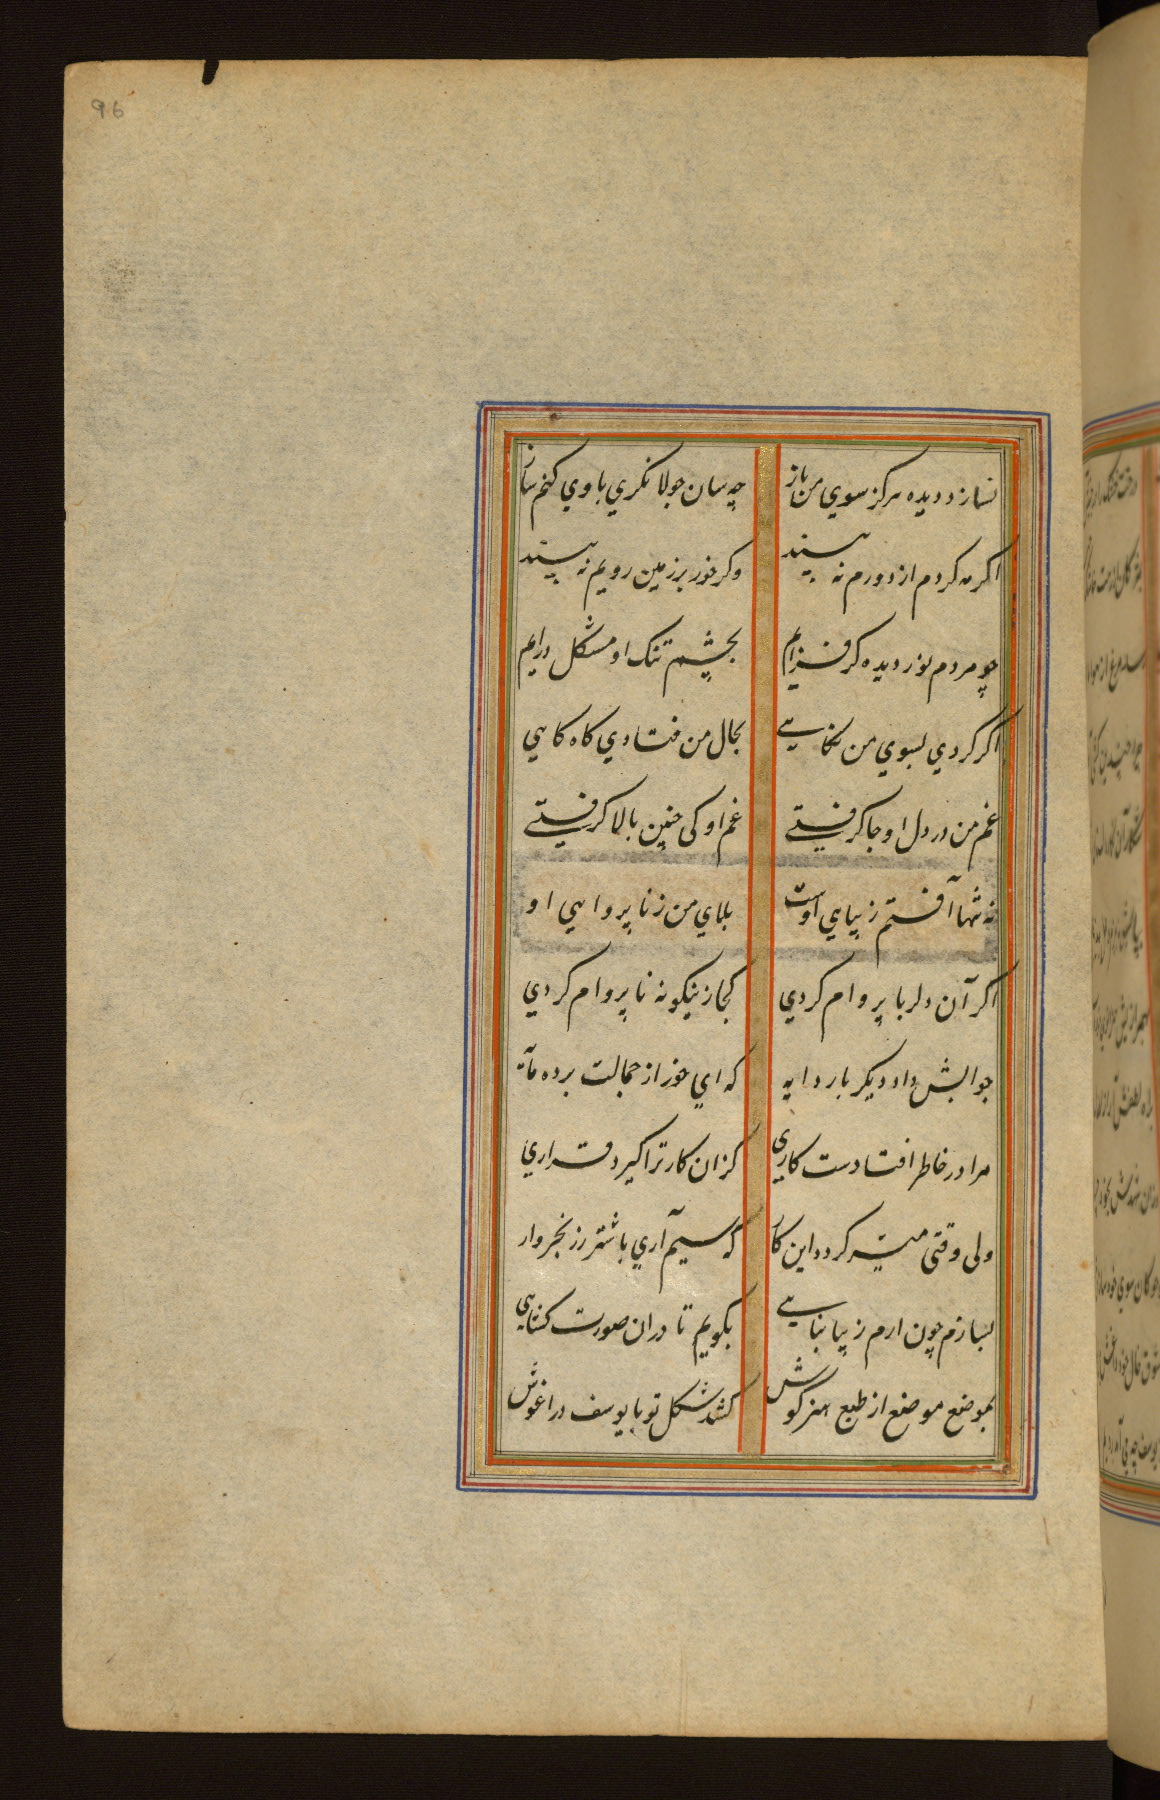 96
نسازد دیده هرگز سوی من باز چه سان جولانگری با وی کنم ساز
اگر مه گردم از دورم نه بیند وگر خور بر زمین رویم نه بیند
چو مردم نور دیده گر فزایم بچشم تنگ او مشکل درایم
اگر کردی بسوی من نگاهی بحال من فتادی گاه گاهی
غم من در دل او جا گرفتی غم او کی چنین بالا گرفتی
نه تنها آفتم زیبایی اوست بلای من ز نا پروایی او
اگر آن دلربا پروام کردی کجا زینگونه نا پروام کردی
جوابش داد دیگر بار دایه که ای حور از جمالت برده مایه
مرا در خاطر افتادست کاری کزان کار ترا گیرد قراری
ولی وقتی میسر گردد این کار که سیم آری باشتر زر بخروار
بسازم چون ارم زیبا بنایی بگویم تا دران صورت گشایی
بموضع موضع از طبع هنرکوش کشد شکل تو با یوسف در آغوش